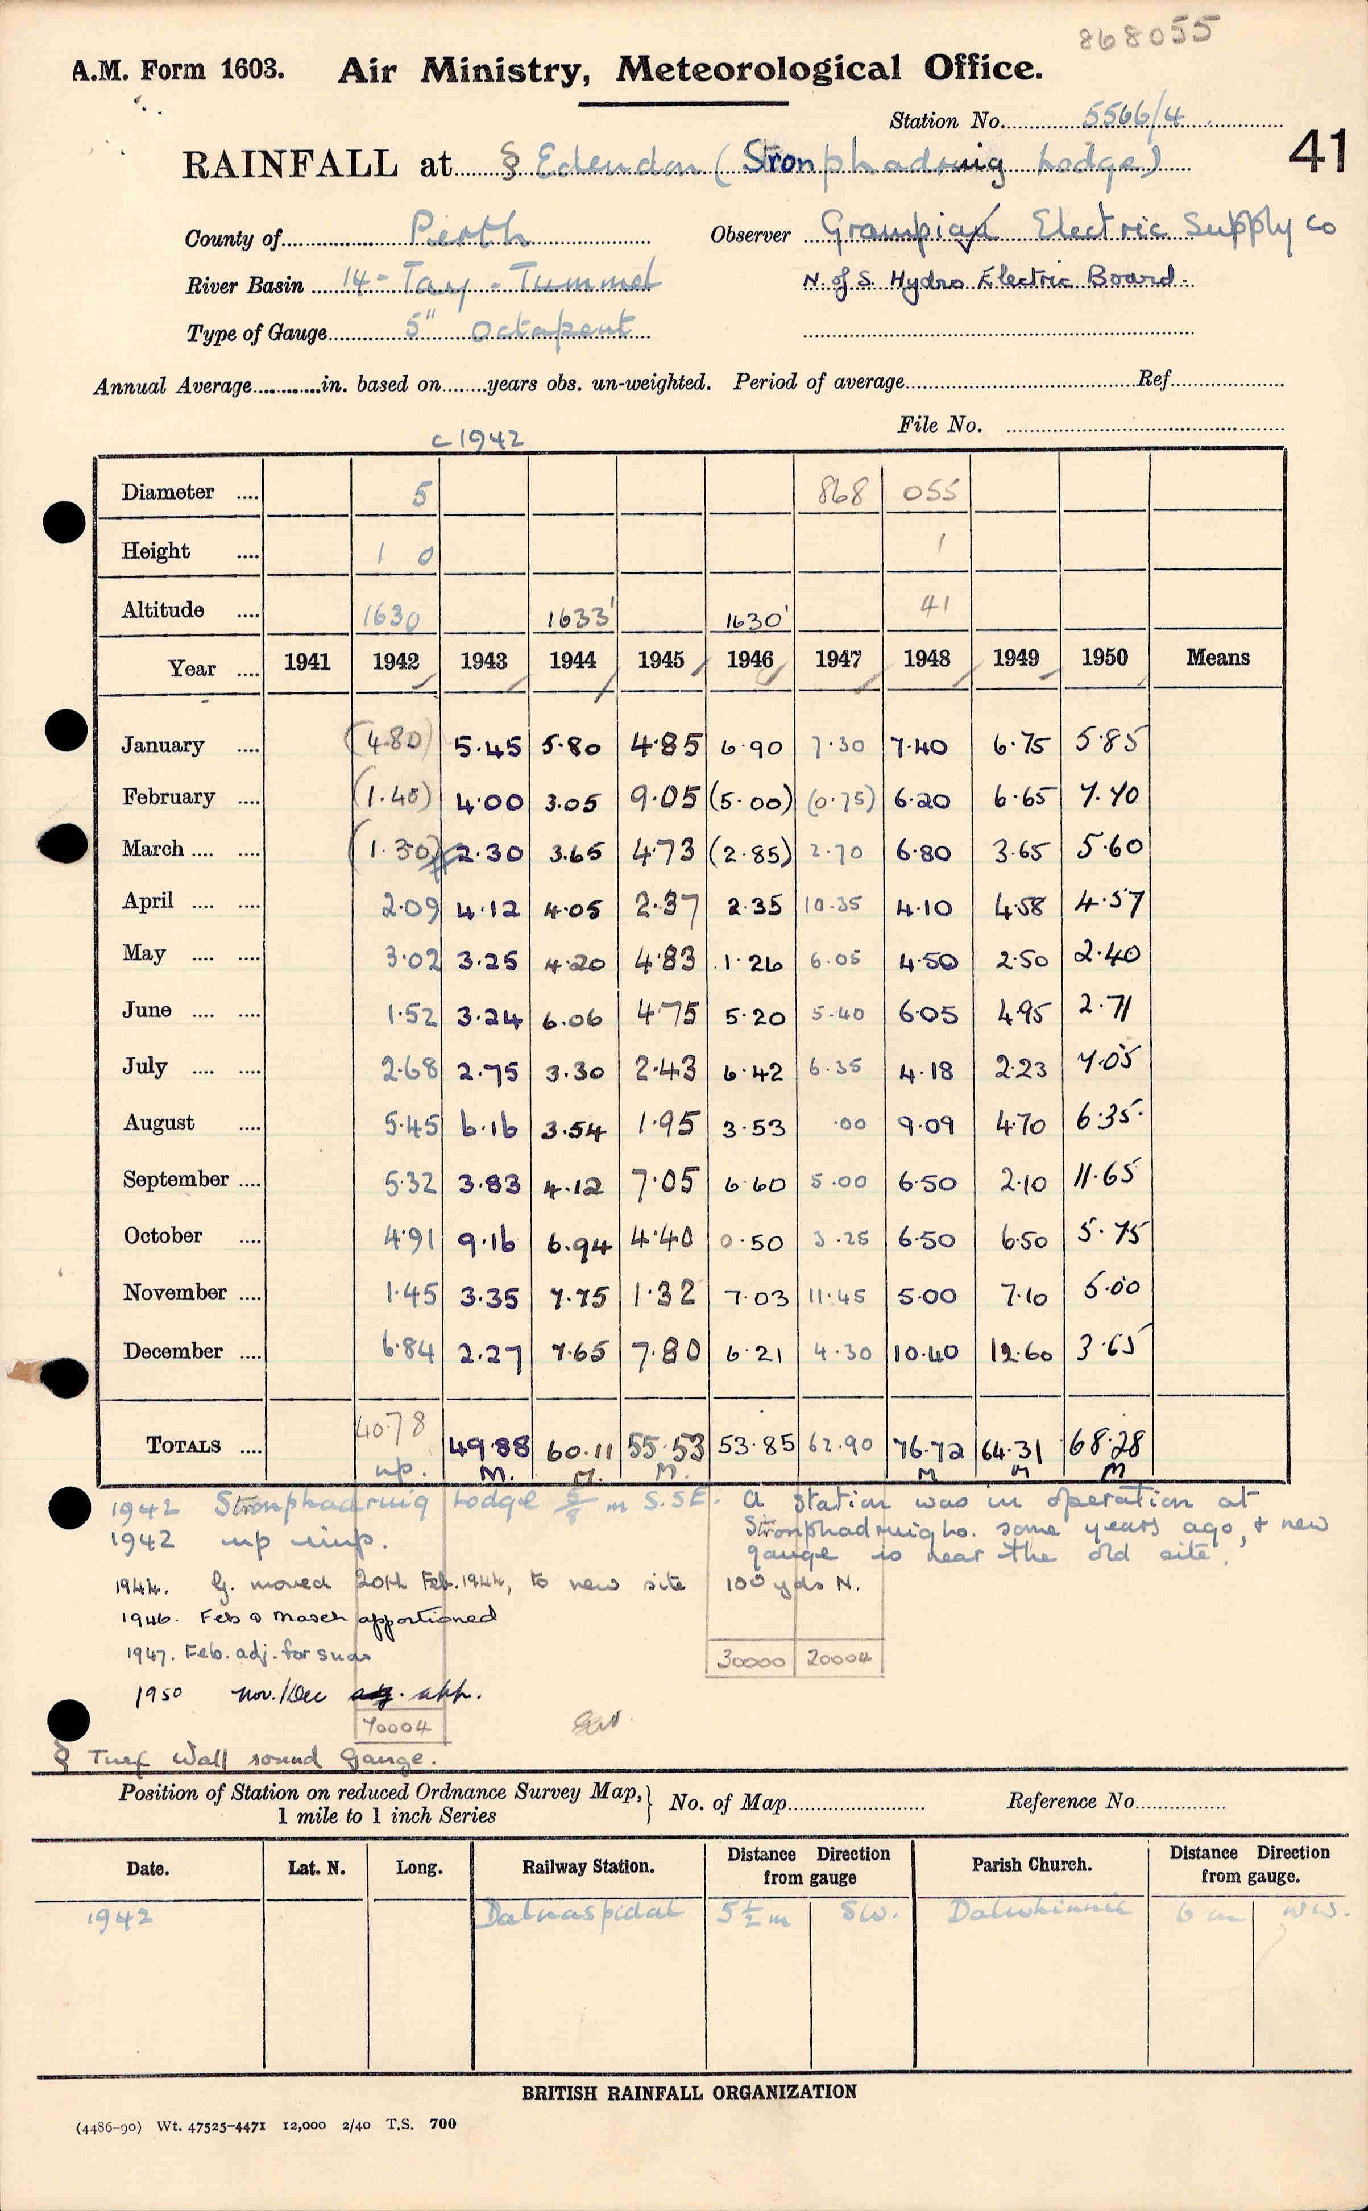 868055
A.M. Form 1603. Air Ministry, Meteorological Office.
Station No. 5566/4
41
RAINFALL at § Edendon (Stronphadruig Lodge)
County of Perth Observer Grampian Electric Supply Co
River Basin 14 - Tay - Tummel N. of S. Hydro Electric Board.
Type of Gauge 5" Octapent
Annual Average in. based on years obs. un-weighted. Period of average Ref
File No.
c 1942
Diameter 5 868 055
Height 1 0 1
Altitude 1630 1633' 1630' 41
Year 1941 1942 1943 1944 1945 1946 1947 1948 1949 1950 Means
January (4.80) 5.45 5.80 4.85 6.90 7.30 7.40 6.75 5.85
February (1.40) 4.00 3.05 9.05 (5.00) (0.75) 6.20 6.65 7.70
March (1.30) 2.30 3.65 4.73 (2.85) 2.70 6.80 3.65 5.60
April 2.09 4.12 4.05 2.37 2.35 10.35 4.10 4.58 4.57
May 3.02 3.25 4.20 4.83 1.26 6.05 4.50 2.50 2.40
June 1.52 3.24 6.06 4.75 5.20 5.40 6.05 4.95 2.71
July 2.68 2.75 3.30 2.43 6.42 6.35 4.18 2.23 7.05
August 5.45 6.16 3.54 1.95 3.53 .00 9.09 4.70 6.35
September 5.32 3.83 4.12 7.05 6.60 5.00 6.50 2.10 11.65
October 4.91 9.16 6.94 4.40 0.50 3.25 6.50 6.50 5.75
November 1.45 3.35 7.75 1.32 7.03 11.45 5.00 7.10 5.00
December 6.84 2.27 7.65 7.80 6.21 4.30 10.40 12.60 3.65
TOTALS 40.78 49.88 60.11 55.53 53.85 62.90 76.72 64.31 68.28
up. M. M. M. M M M
1942 Stronphadruig Lodge 5/8 m S.SE. A station was in operation at
1942 up inp. Stronphadruig Lo. some years ago, & new
gauge is near the old site.
1944. G. moved 20th Feb. 1944, to new site 100 yds N.
1946. Feb & March apportioned
1947. Feb. adj. for snow
30000 20004
1950 Nov./Dec adj. app.
70004
§ Turf Wall round Gauge.
Position of Station on reduced Ordnance Survey Map, 1 mile to 1 inch Series No. of Map Reference No.
Date. Lat. N. Long. Railway Station. Distance Direction from gauge Parish Church. Distance Direction from gauge.
1942 Dalnaspidal 5½ m SW. Dalwhinnie 6 m
BRITISH RAINFALL ORGANIZATION
(4486-90) Wt. 47525-4471 12,000 2/40 T.S. 700